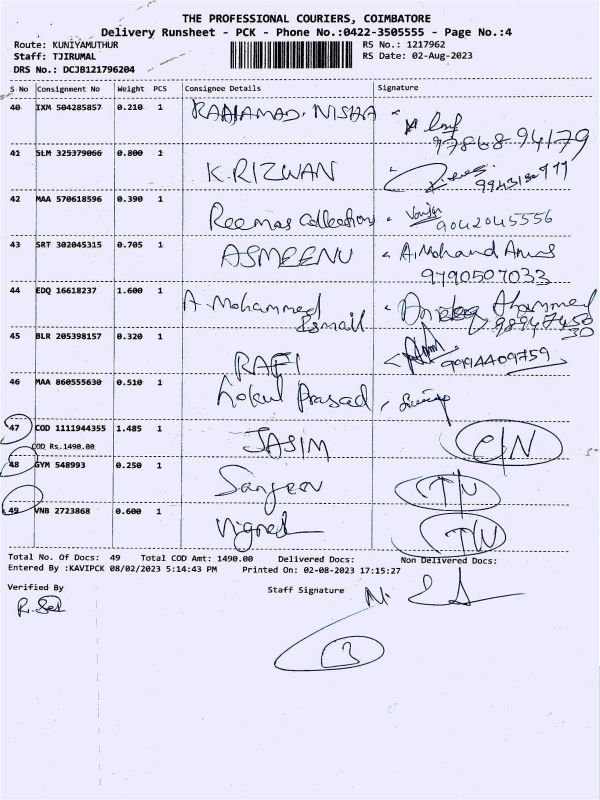 THE PROFESSIONAL COURIERS, COIMBATORE
Delivery Runsheet - PCK - Phone No.:0422-3505555 - Page No.:4
Route: KUNIYAMUTHUR RS No.: 1217962
Staff: TJIRUMAL RS Date: 02-Aug-2023
DRS No.: DCJB121796204
S No Consignment No Weight PCS Consignee Details Signature
40 IXM 504285857 0.210 1 NISHA
97868 94179
41 SLM 325379066 0.800 1 K.RIZWAN
42 MAA 570618596 0.390 1 Reemas Collections
9042045556
43 SRT 302045315 0.705 1 ASMEENU A.Mohand
9790507033
44 EDQ 16618237 1.600 1 A. Mohammed
Ismail
45 BLR 205398157 0.320 1 RAFI 9994409759
46 MAA 860555630 0.510 1 Gokul Prasad
47 COD 1111944355 1.485 1 JASIM C/N
COD Rs.1490.00
48 GYM 548993 0.250 1 Sanjeev
49 VNB 2723868 0.600 1
Total No. Of Docs: 49 Total COD Amt: 1490.00 Delivered Docs: Non Delivered Docs:
Entered By :KAVIPCK 08/02/2023 5:14:43 PM Printed On: 02-08-2023 17:15:27
Verified By Staff Signature
3